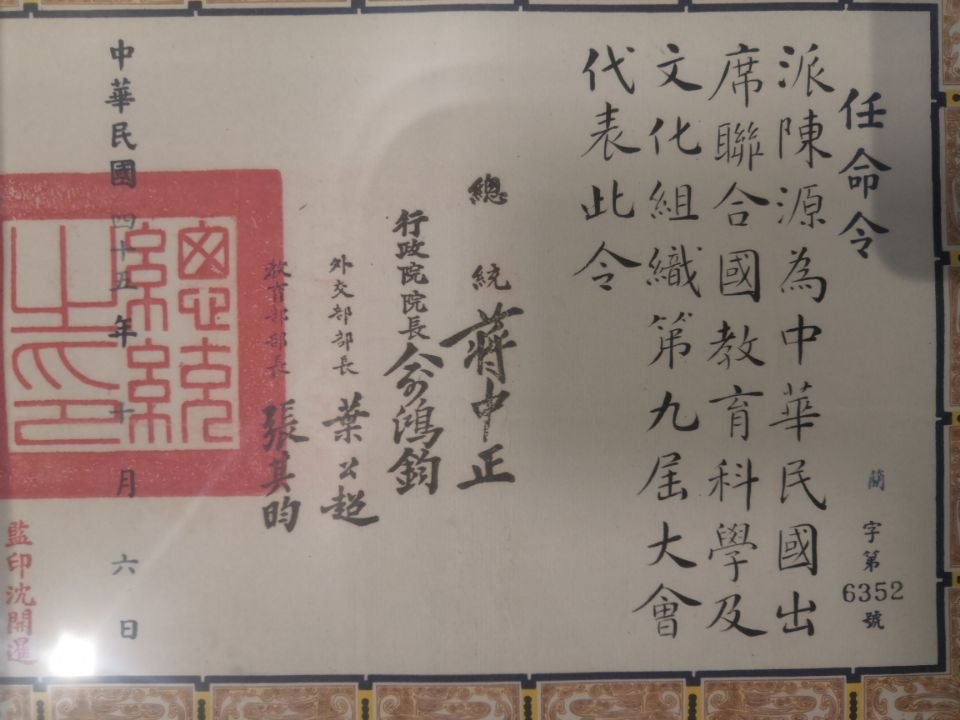 任命令
派陳源為中華民國出
席聯合國教育科學及
文化組織第九屆大會
代表此令
總統蔣中正
行政院院長俞鴻鈞
外交部部長葉公超
教育部部長張其昀
中華民國四十五年十月六日
總統之印
監印沈開暹
蘭字第6352號